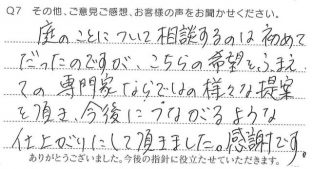 Q7 その他、ご意見ご感想、お客様の声をお聞かせください。
庭のことについて相談するのは初めて
だったのですが、こちらの希望をふまえ
ての専門家ならではの様々な提案
を頂き、今後につながるような
仕上がりにして頂きました。感謝です。
ありがとうございました。今後の指針に役立たせていただきます。